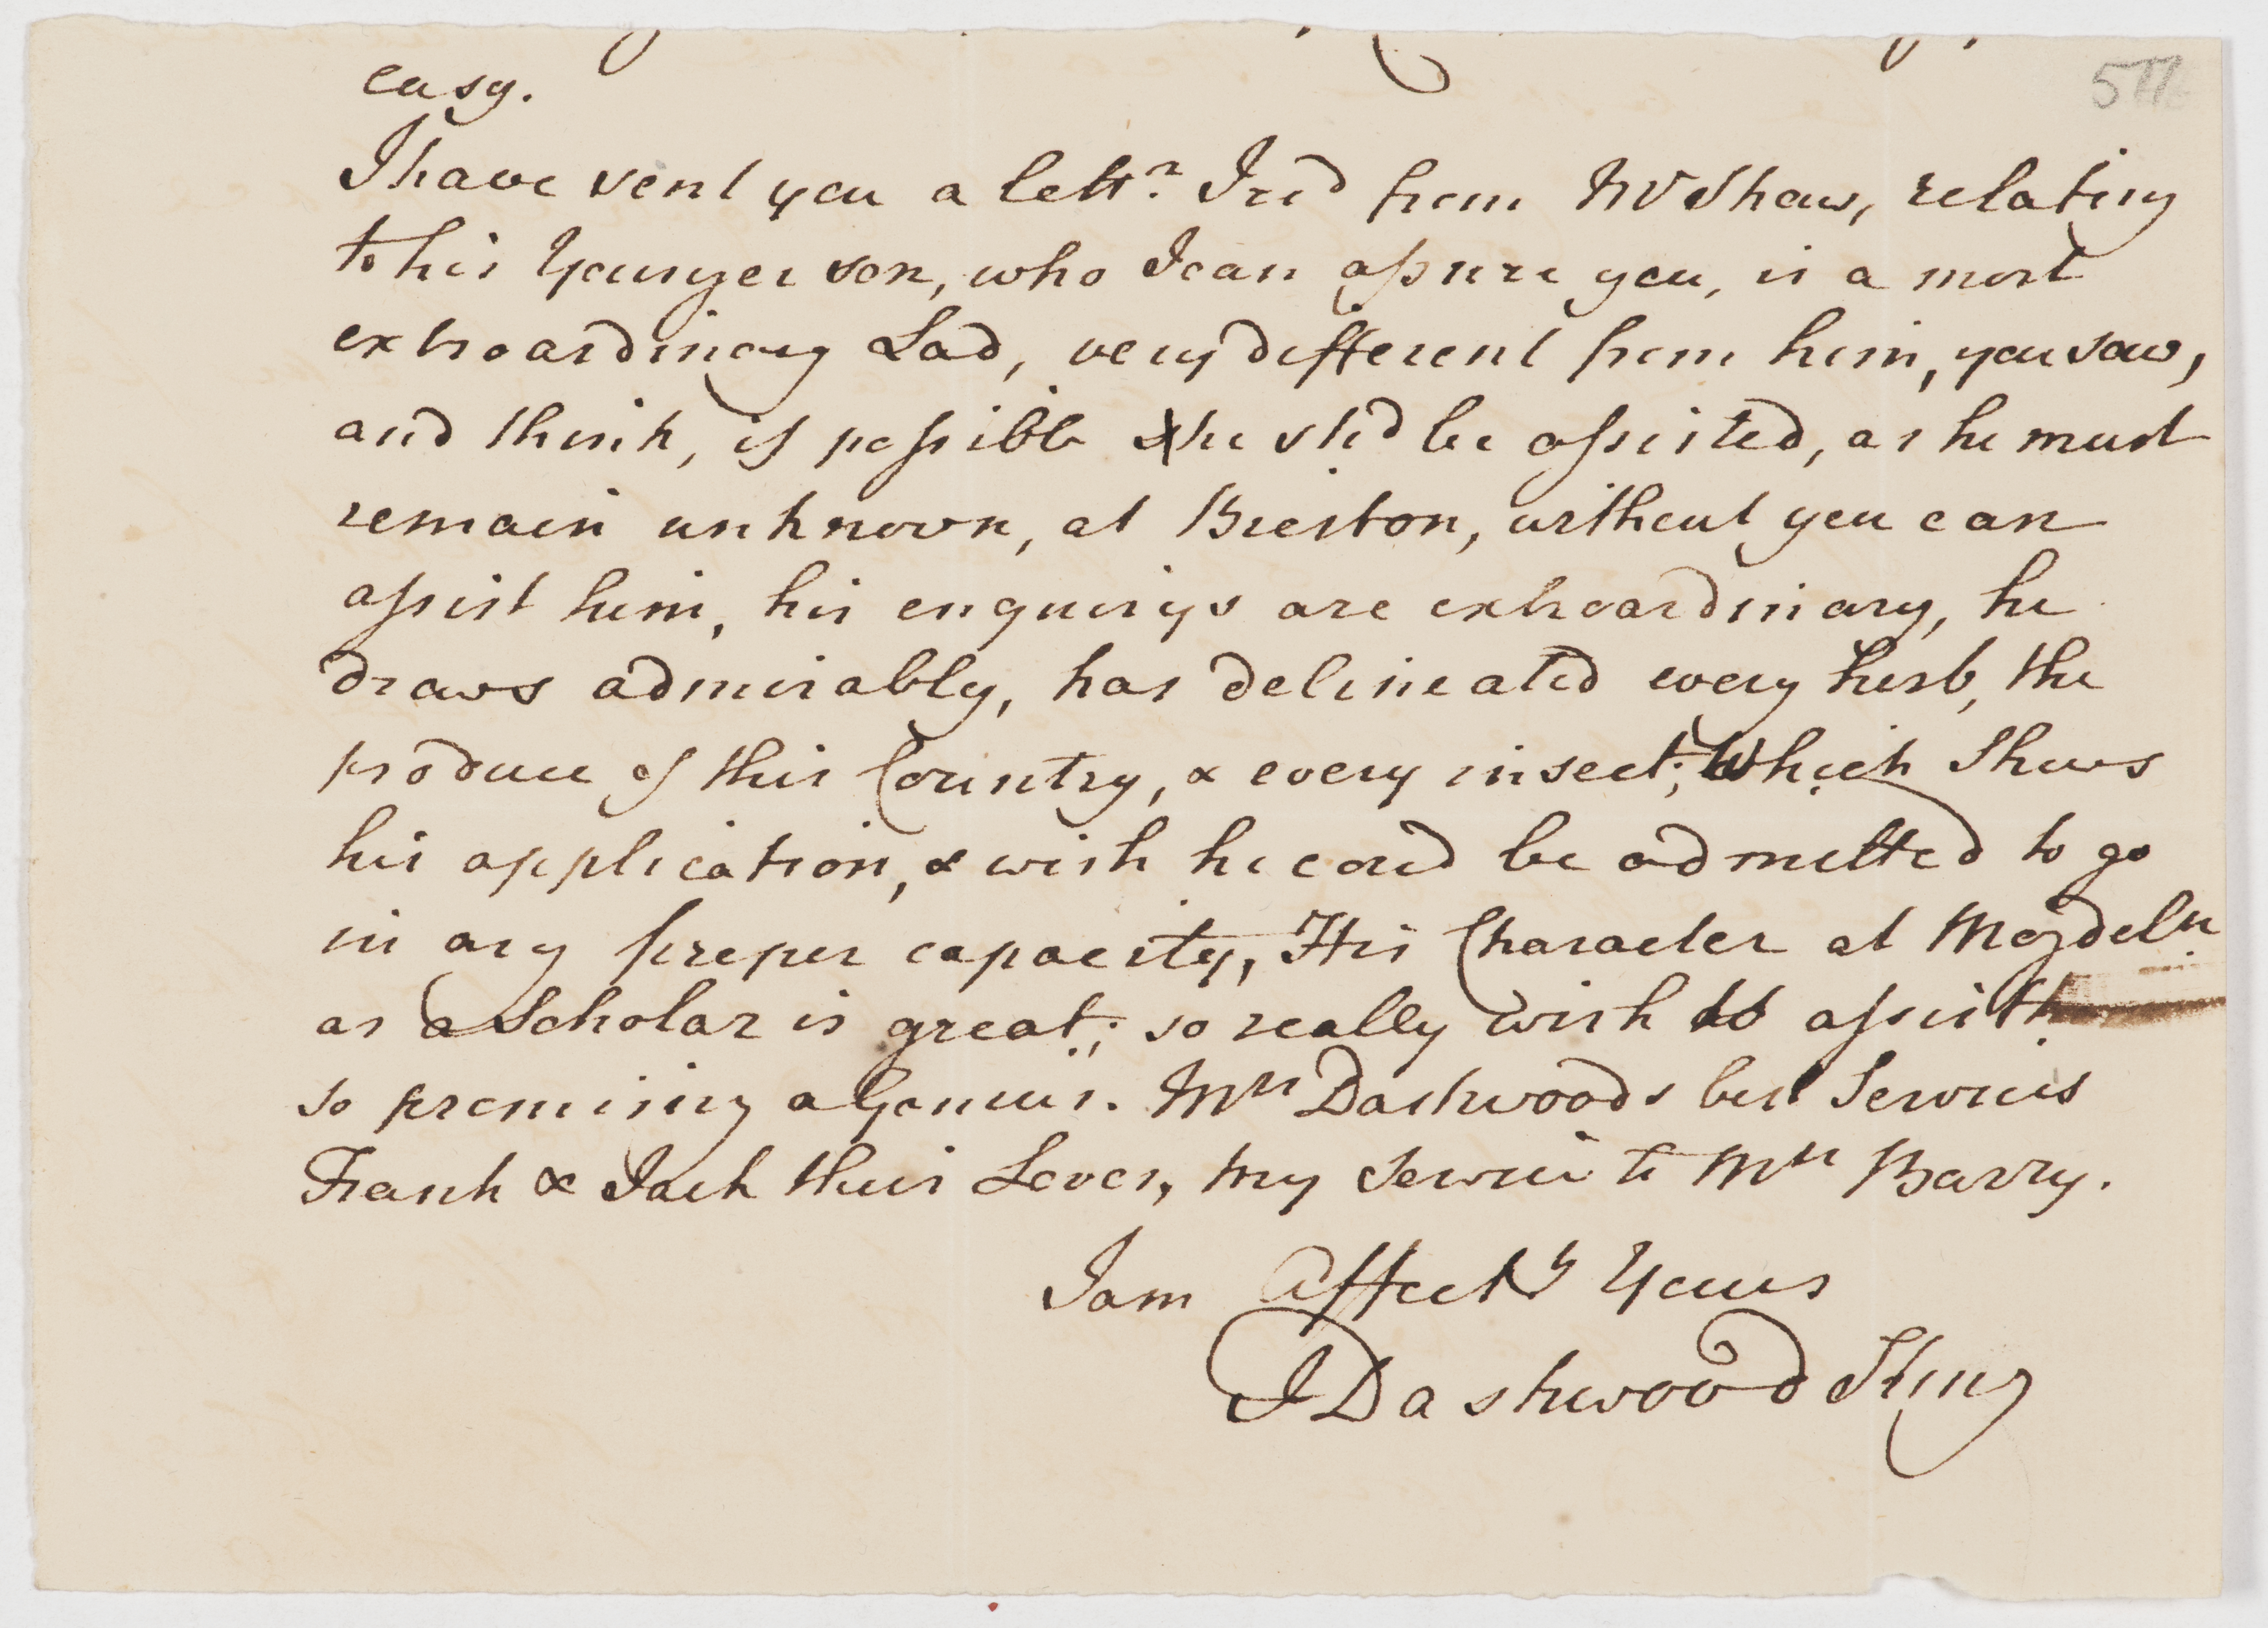 577
easy.
I have sent you a letr. I recd from Mr Shaw, relating
to his Younger son, who I can assure you, is a most
extroardinary Lad, very different from him, you saw,
and think, if possible he shd be assisted, as he must
remain unknown, at Bierton, without you can
assist him, his enquirys are extroardinary, he
draws admirably, has delineated every herb, the
produce of this Country, & every insect; Which Shews
his application, & wish he coud be admitted to go
in any proper capacity, His Character at Magdeln
as a Scholar is great; so really wish to assist
so promising a Genius. Mrs Dashwoods best Services
Frank & Jack their Loves, my Service to Mrs Barry.
I am Affectly Yours
J Dashwood King